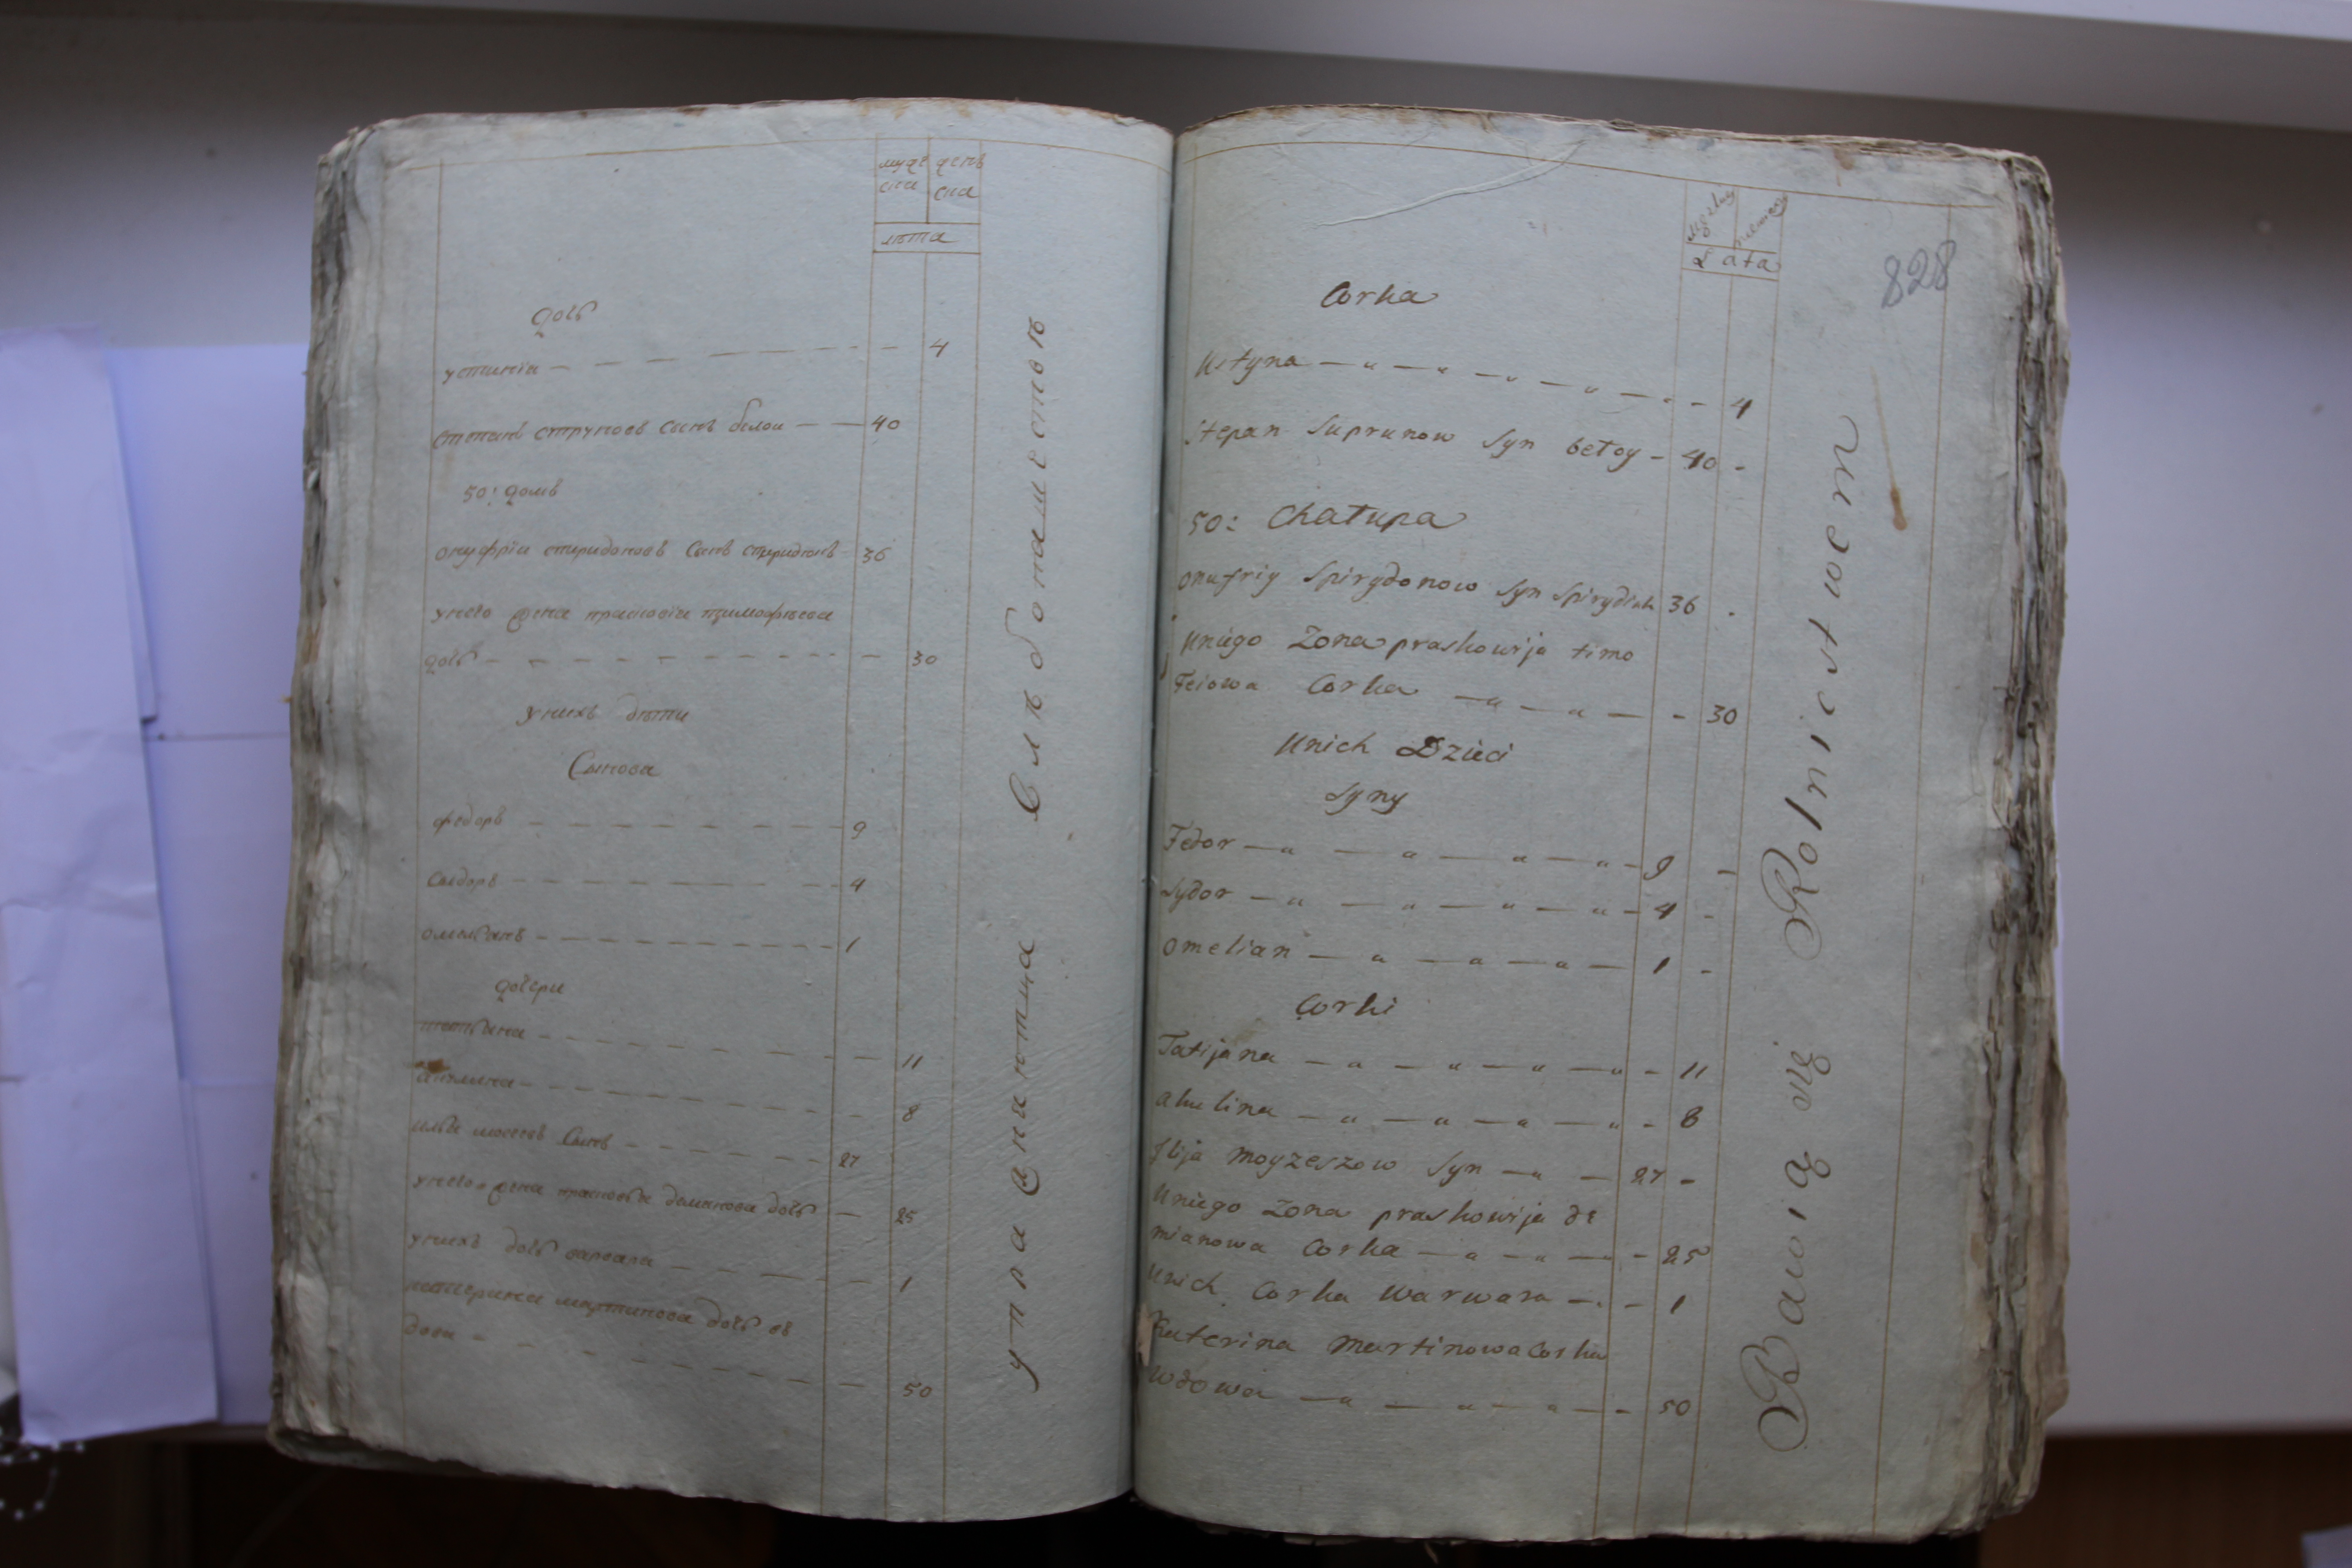 муже женъ
ска ска
лѣта
дочь
устинія — — — — — 4
степанъ супруновъ сынъ белои — — 40
50: домъ
онуфріи спиридоновъ сынъ спиридюкъ 36
унего жена прасковіа тимофѣева
дочь — — — — — — 30
унихъ дѣти
Сынови
федоръ — — — — — 9
сыдоръ — — — — — 4
омельянъ — — — — — 1
дочери
татьяна — — — — — 11
акилина — — — — — 8
илья моисеевъ Сынъ — — — — 27
унего жена прасковья демянова дочь — 25
унихъ дочь варвара — — — — 1
катерина мартинова дочь в
дова — — — — — 50
упражняютца Хлѣбопашествомъ
828
Męzkiey
Lata
Corka
Ustyna — „ — „ — „ — „ — - - 4
Stepan Suprunow Syn bełoy - 40 -
50: Chałupa
Onufriy Spirydonow Syn Spirydiuk 36 .
Uniego Zona praskowija timo
Feiowa Corka — „ — „ — - 30
Unich Dzieci
Syny
Fedor — „ — „ — „ — „ - 9 -
Sydor — „ — „ — „ — „ - 4 -
Omelian — „ — „ — „ — 1 -
Corki
Tatijana — „ — „ — „ — „ - 11
akulina — „ — „ — „ — „ - 8
Ilija Moyzeszow Syn — „ - 27 -
Uniego Zona praskowija de
mianowa Corka — „ — „ — - 25
Unich Corka Warwara — . - 1
Katerina Martinowa Corka
Wdowa — „ — „ — „ — - 50
Bawią się Rolnictwem